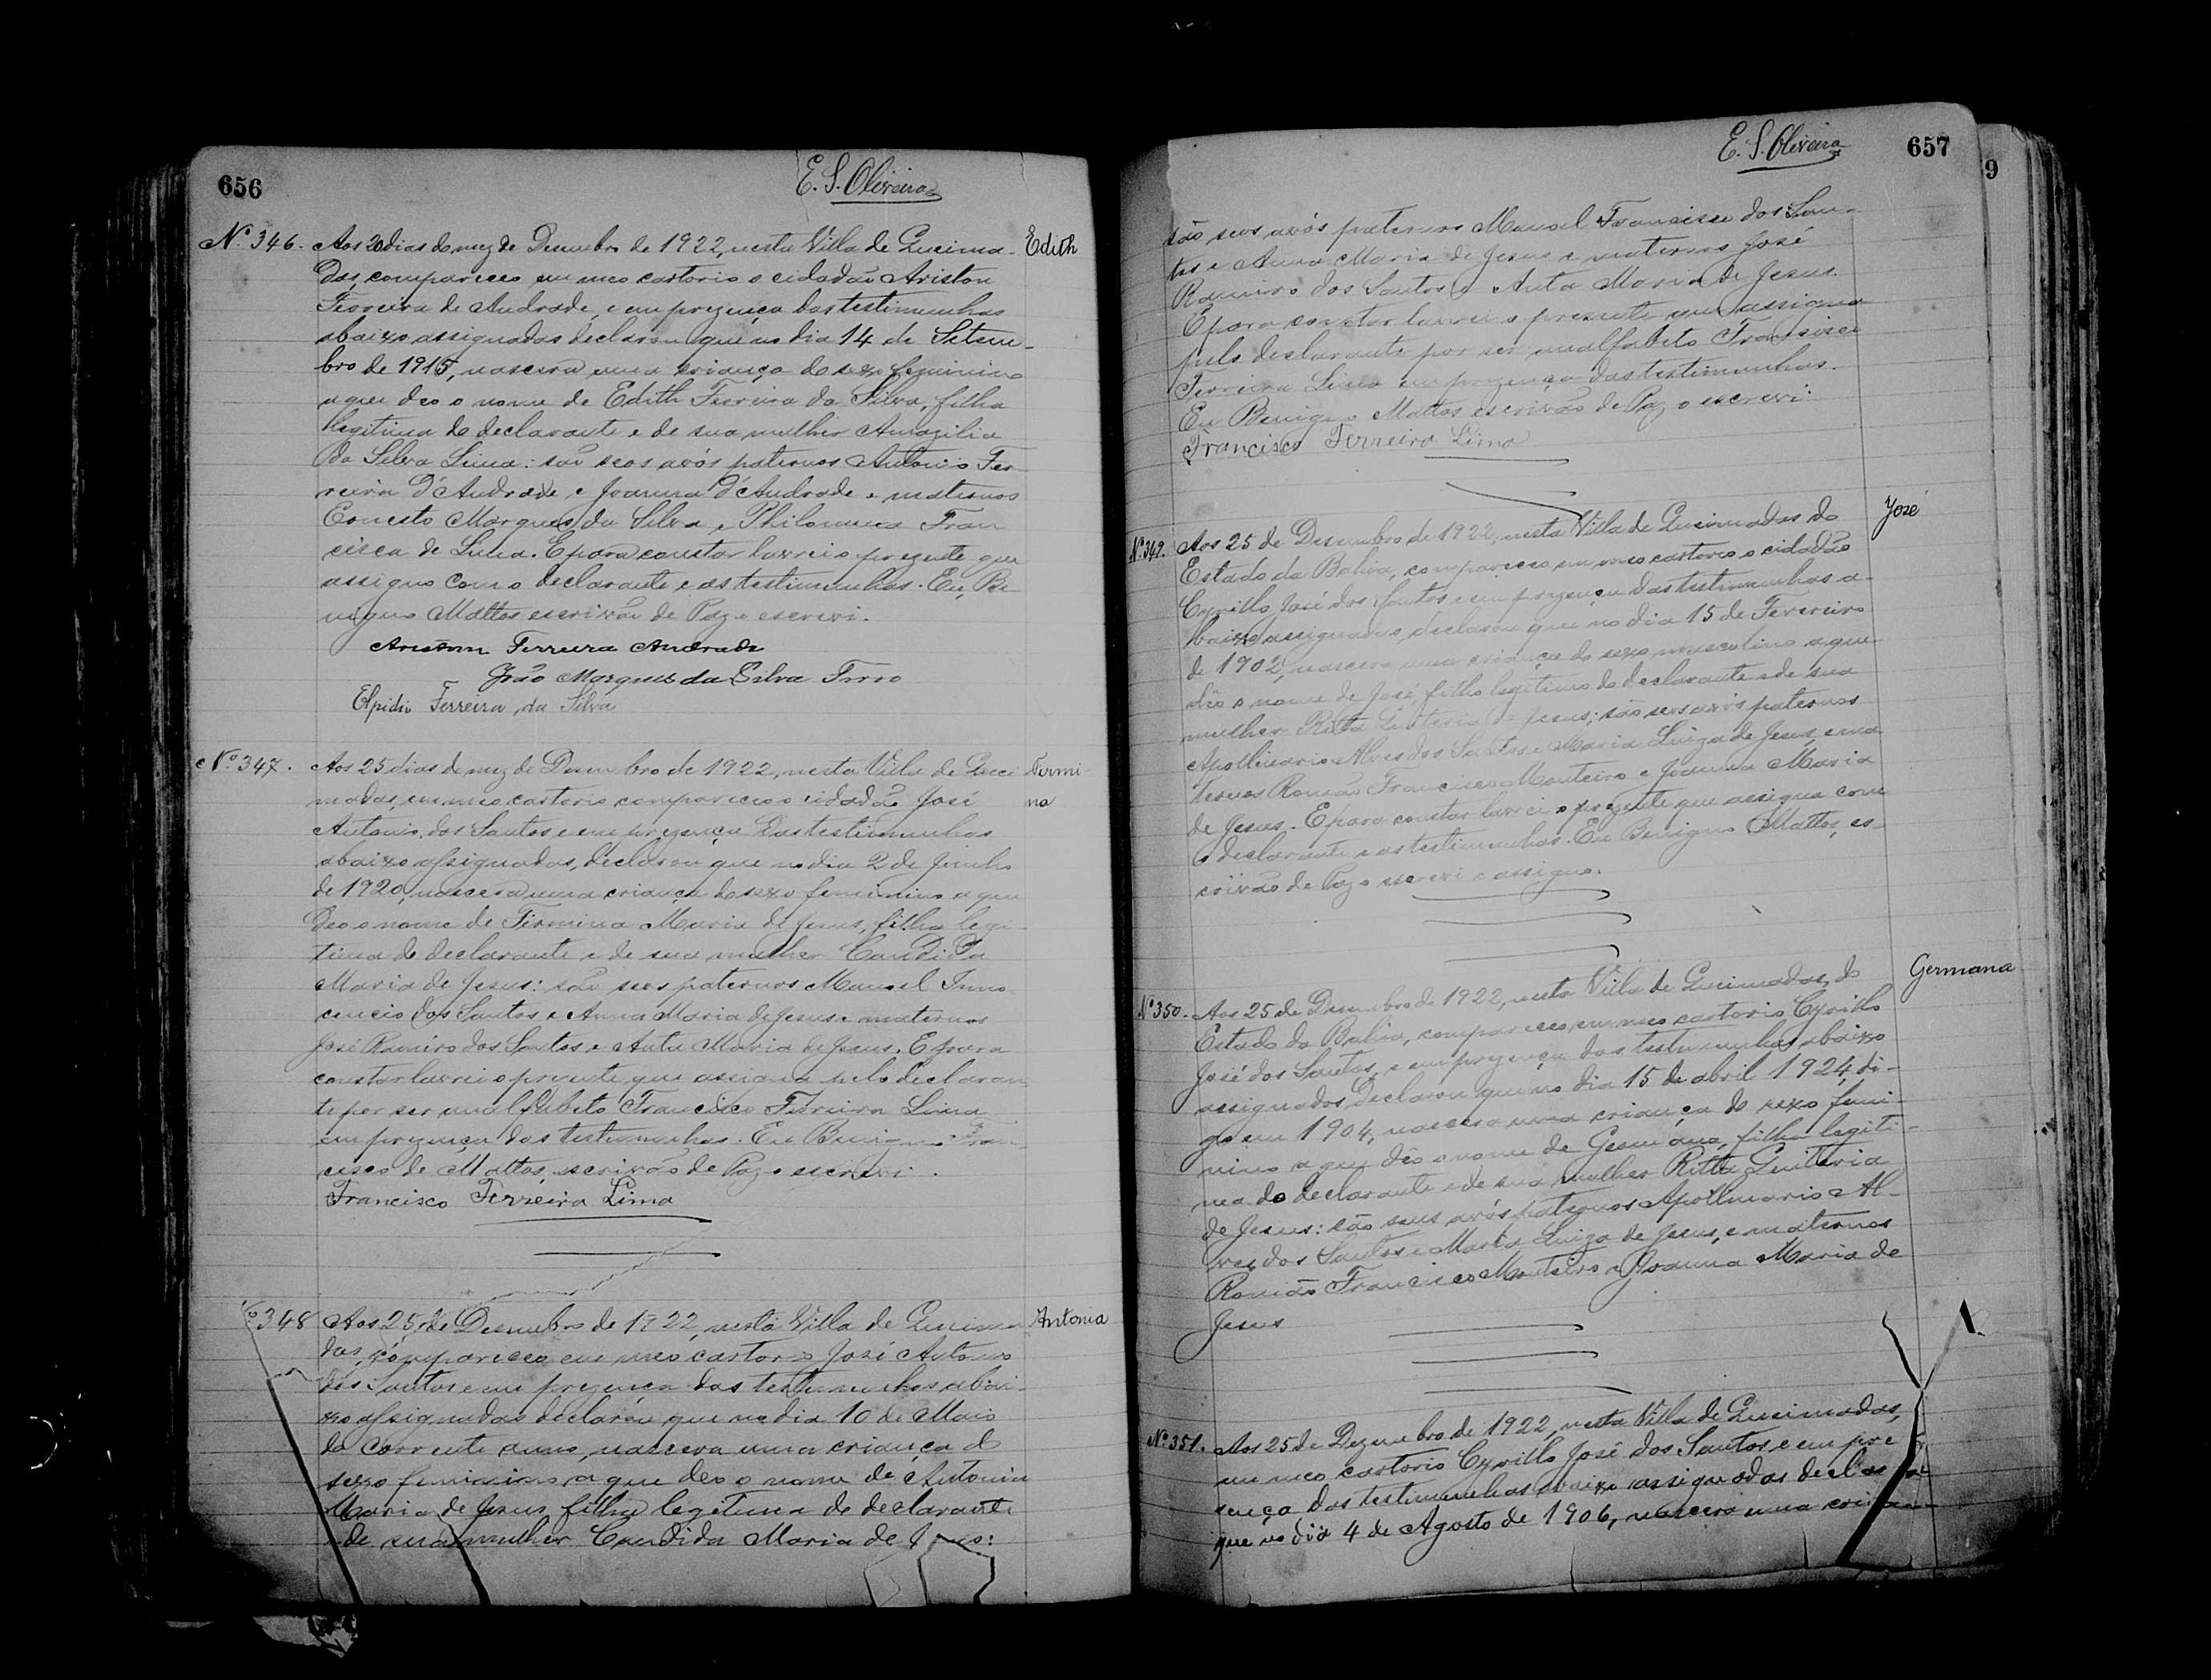 656
E. S. Oliveira
Nº 346. Aos 20 dias do mez de Desembro de 1922, nesta Villa de Queima- Edith
das, compareceo em meo cartorio o cidadão Ariston
Ferreira de Andrade, e em prezença das testimunhas
abaixo assignadas declarou que no dia 14 de Setem-
bro de 1915, nascera uma criança do sexo feminino
a que deo o nome de Edith Ferreira da Silva, filha
legitima do declarante e de sua mulher Amazilia
da Silva Lima: são seos avós paternos Antonio Fer
reira d'Andrade e Joanna d'Andrade e maternos
Ernesto Marques da Silva e Philomena Fran
cisca de Lima. E para constar lavrei o prezente que
assigno com o declarante e as testimunhas. Eu, Be
nigno Mattos escrivão de Paz o escrevi.
Ariston Ferreira Andrade
João Marques da Silva
Elpidio Ferreira da Silva
Nº 347. Aos 25 dias do mez de Desembro de 1922, nesta Villa de Quei Firmi
madas, em meo cartorio compareceo o cidadão José na
Antonio dos Santos e em prezença das testimunhas
abaixo assignadas, declarou que no dia 2 de Junho
de 1920, nascera uma criança do sexo feminino a que
deo o nome de Firmina Maria de Jesus, filha legi
tima do declarante e de sua mulher Candida
Maria de Jesus: são seos paternos Manoel Inno
cencio dos Santos e Anna Maria de Jesus e maternos
José Ramiro dos Santos e Anta Maria de Jesus. E para
constar lavrei o prezente que assigna pelo declaran
te por ser analfabeto Francisco Ferreira Lima
em prezença das testimunhas. Eu Benigno Fran-
cisco de Mattos, escrivão de Paz o escrevi.
Francisco Ferreira Lima
348 Aos 25 de Desembro de 1922, nesta Villa de Queima Antonia
das, compareceo em meo cartorio José Antonio
dos Santos e em prezença das testimunhas abai-
xo assignadas declarou que no dia 10 de Maio
do corrente anno, nascera uma criança do
sexo feminino a que deo o nome de Antonia
Maria de Jesus filha legitima do declarante
e de sua mulher Candida Maria de Jesus:
E. S. Oliveira 657
9
são seos avós paternos Manoel Francisco dos San-
tos e Anna Maria de Jesus e maternos José
Ramiro dos Santos e Anta Maria de Jesus.
E para constar lavrei o presente que assigna
pelo declarante por ser analfabeto Francisco
Ferreira Lima em prezença das testimunhas.
Eu Benigno Mattos escrivão de Paz o escrevi:
Francisco Ferreira Lima
Nº 349. Aos 25 de Desembro de 1922, nesta Villa de Queimadas do José
Estado da Bahia, compareceo em meo cartorio o cidadão
Cyrillo José dos Santos e em prezença das testimunhas a-
baixo assignadas, declarou que no dia 15 de Fevereiro
de 1902, nascera uma criança do sexo masculino a que
deo o nome de José filho legitimo do declarante e de sua
mulher Ritta Quiteria de Jesus; são seos avós paternos
Apollinario Alves dos Santos e Maria Luiza de Jesus, e ma
ternos Romão Francisco Monteiro e Joanna Maria
de Jesus. E para constar lavrei o prezente que assigna com
o declarante e as testimunhas. Eu Benigno Mattos, es-
crivão de Paz o escrevi e assigno.
Nº 350. Aos 25 de Desembro de 1922, nesta Villa de Queimadas, do Germana
Estado da Bahia, compareceo em meo cartorio Cyrillo
José dos Santos, e em prezença das testimunhas abaixo
assignadas declarou que no dia 15 de abril 1924, di-
go em 1904, nascera uma criança do sexo femi-
nino a que deo o nome de Germana, filha legiti-
ma do declarante e de sua mulher Ritta Quiteria
de Jesus: são seus avós paternos Apollinario Al-
ves dos Santos e Maria Luiza de Jesus, e maternos
Romão Francisco Monteiro e Joanna Maria de
Jesus
Nº 351. Aos 25 de Dezembro de 1922, nesta Villa de Queimadas,
em meo cartorio Cyrillo José dos Santos e em pre
sença das testimunhas abaixo assignadas declarou
que no dia 4 de Agosto de 1906, nascera uma crian-